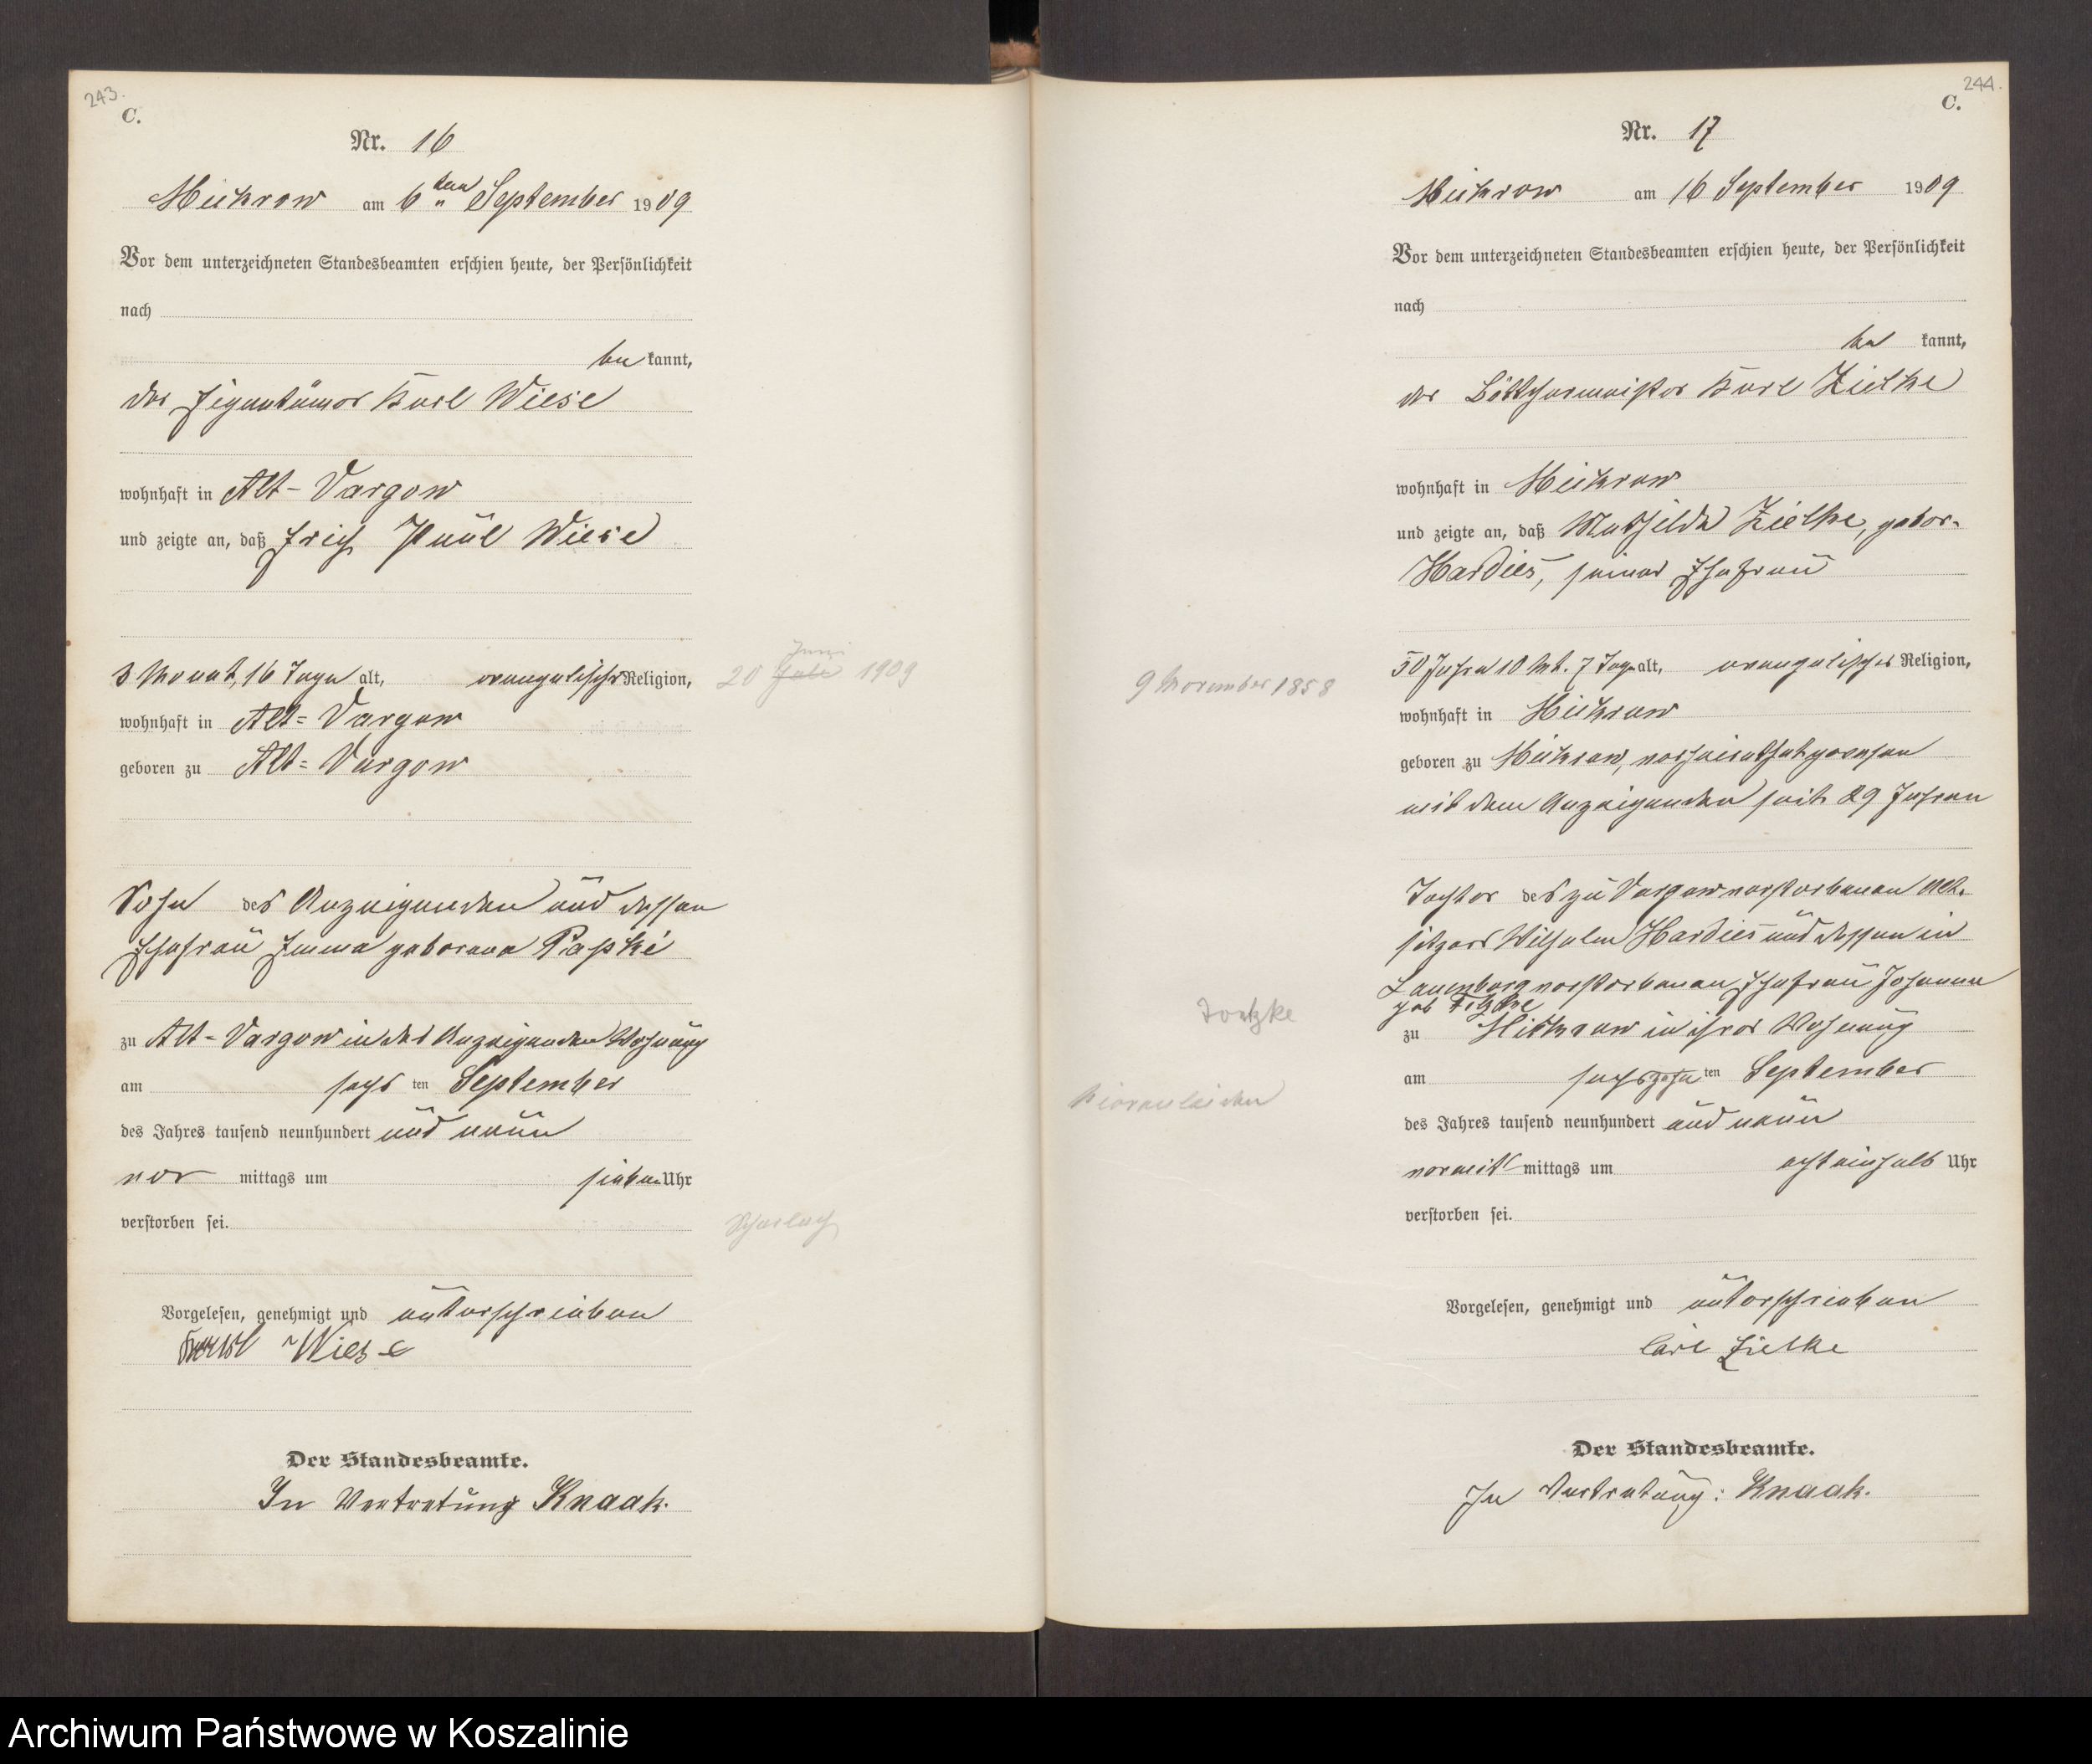 243.
C.
Nr. 16
Mickrow am 6ten September 1909
Vor dem unterzeichneten Standesbeamten erschien heute, der Persönlichkeit
nach
be kannt,
der Eigentümer Karl Wiese
wohnhaft in Alt-Vargow
und zeigte an, daß Erich Paul Wiese
3 Monat, 16 Tage alt, evangelischer Religion,
Juni
20 Juli 1909
wohnhaft in Alt-Vargow
geboren zu Alt-Vargow
Sohn des Anzeigenden und dessen
Ehefrau Emma geborene Papke
zu Alt-Vargow in des Anzeigenden Wohnung
am sechs ten September
des Jahres tausend neunhundert und neun
vor mittags um sieben Uhr
verstorben sei.
Scharlach
Vorgelesen, genehmigt und unterschrieben
Karl Wiese
Der Standesbeamte.
In Vertretung Knaak.
244.
C.
Nr. 17
Mickrow am 16 September 1909
Vor dem unterzeichneten Standesbeamten erschien heute, der Persönlichkeit
nach
be kannt,
der Böttchermeister Karl Zielke
wohnhaft in Mickrow
und zeigte an, daß Mathilde Zielke, gebor.
Hardies, seiner Ehefrau
9 November 1858
50 Jahre 10 Mt. 7 Tage alt, evangelischer Religion,
wohnhaft in Mickrow
geboren zu Mickrow, verheiratet gewesen
mit dem Anzeigenden seit 29 Jahren
Tochter des zu Vargow verstorbenen Alt-
sitzers Wilhelm Hardies und dessen in
Lauenburg verstorbenen Ehefrau Johanna
geb
zu Mickrow in ihrer Wohnung
am sechszehn ten September
Nierenleiden
des Jahres tausend neunhundert und neun
vormit mittags um achteinhalb Uhr
verstorben sei.
Vorgelesen, genehmigt und unterschrieben
Carl Zielke
Der Standesbeamte.
In Vertretung: Knaak.
Archiwum Państwowe w Koszalinie